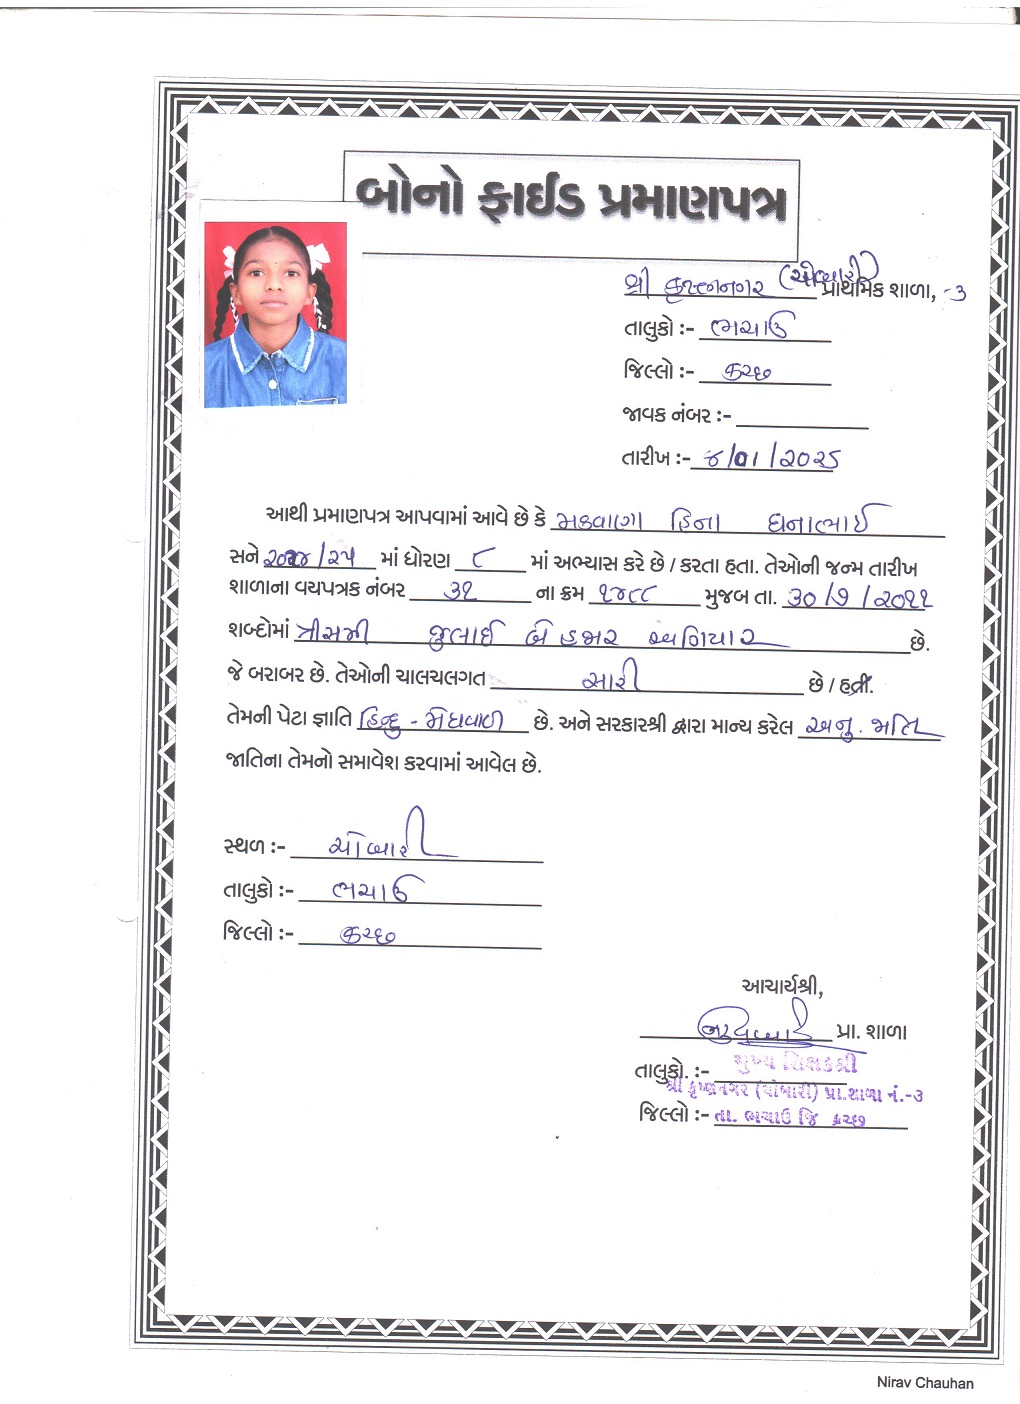 બોનો ફાઈડ પ્રમાણપત્ર
શ્રી કૃષ્ણનગર (ચોબારી) પ્રાથમિક શાળા, -૩
તાલુકો :- ભચાઉ
જિલ્લો :- કચ્છ
જાવક નંબર :-
તારીખ :- ૪/૦૧/૨૦૨૫
આથી પ્રમાણપત્ર આપવામાં આવે છે કે મકવાણા હિના ધનાભાઈ
સને ૨૦૨૪/૨૫ માં ધોરણ ૮ માં અભ્યાસ કરે છે / કરતા હતા. તેઓની જન્મ તારીખ
શાળાના વયપત્રક નંબર ૩૧ ના ક્રમ ૧૪૮૮ મુજબ તા. ૩૦/૭/૨૦૧૧
શબ્દોમાં ત્રીસમી જુલાઈ બે હજાર અગિયાર છે.
જે બરાબર છે. તેઓની ચાલચલગત સારી છે / હતી.
તેમની પેટા જ્ઞાતિ હિન્દુ - મેઘવાળ છે. અને સરકારશ્રી દ્વારા માન્ય કરેલ અનુ. જાતિ
જાતિના તેમનો સમાવેશ કરવામાં આવેલ છે.
સ્થળ :- ચોબારી
તાલુકો :- ભચાઉ
જિલ્લો :- કચ્છ
આચાર્યશ્રી,
પ્રા. શાળા
તાલુકો. :- મુખ્ય શિક્ષકશ્રી
શ્રી કૃષ્ણનગર (ચોબારી) પ્રા.શાળા નં.-૩
જિલ્લો :- તા. ભચાઉ જિ કચ્છ
Nirav Chauhan